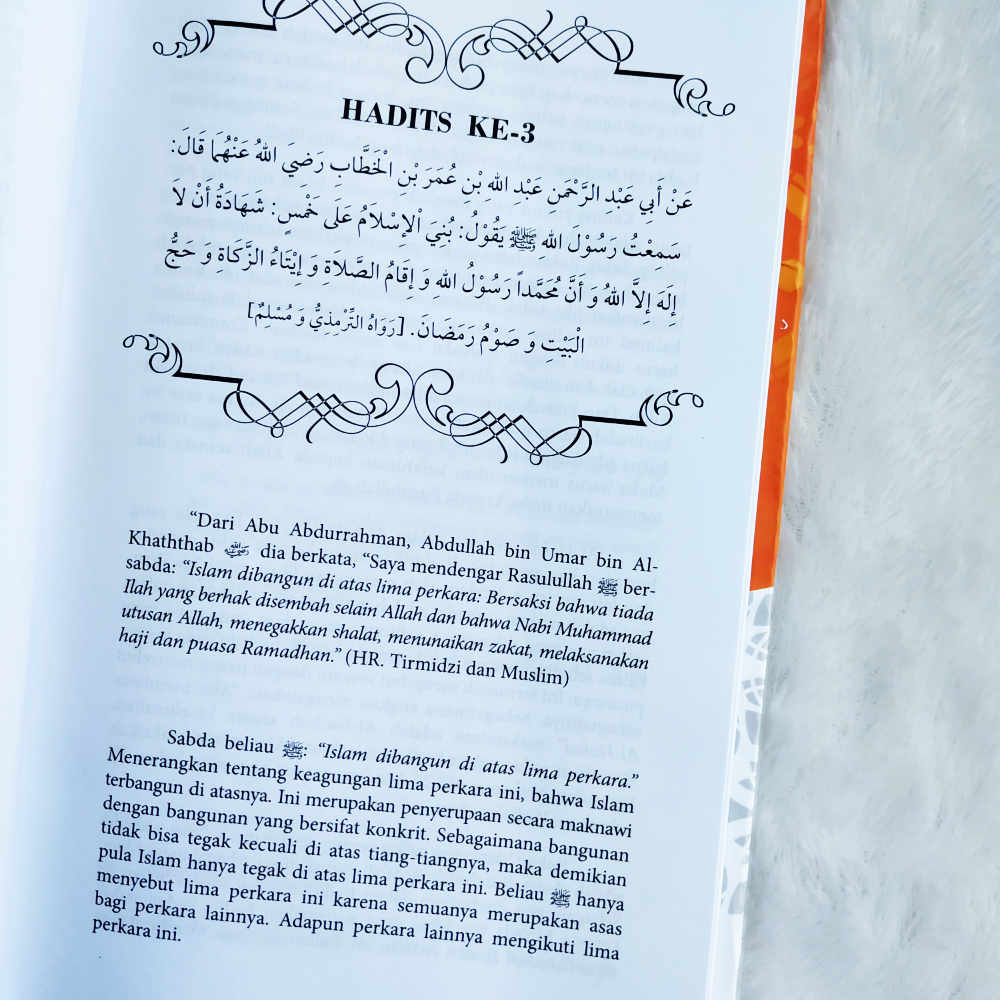 HADITS KE-3
عَنْ أَبِي عَبْدِ الرَّحْمَنِ عَبْدِ اللهِ بْنِ عُمَرَ بْنِ الْخَطَّابِ رَضِيَ اللهُ عَنْهُمَا قَالَ:
سَمِعْتُ رَسُوْلَ اللهِ ﷺ يَقُوْلُ: بُنِيَ اْلإِسْلاَمُ عَلَى خَمْسٍ: شَهَادَةُ أَنْ لاَ
إِلَهَ إِلاَّ اللهُ وَ أَنَّ مُحَمَّداً رَسُوْلُ اللهِ وَ إِقَامُ الصَّلاَةِ وَ إِيْتَاءُ الزَّكَاةِ وَ حَجُّ
الْبَيْتِ وَ صَوْمُ رَمَضَانَ. [رَوَاهُ التِّرْمِذِيُّ وَ مُسْلِمٌ]
“Dari Abu Abdurrahman, Abdullah bin Umar bin Al-
Khaththab dia berkata, “Saya mendengar Rasulullah ﷺ ber-
sabda: “Islam dibangun di atas lima perkara: Bersaksi bahwa tiada
Ilah yang berhak disembah selain Allah dan bahwa Nabi Muhammad
utusan Allah, menegakkan shalat, menunaikan zakat, melaksanakan
haji dan puasa Ramadhan.” (HR. Tirmidzi dan Muslim)
Sabda beliau ﷺ: “Islam dibangun di atas lima perkara.”
Menerangkan tentang keagungan lima perkara ini, bahwa Islam
terbangun di atasnya. Ini merupakan penyerupaan secara maknawi
dengan bangunan yang bersifat konkrit. Sebagaimana bangunan
tidak bisa tegak kecuali di atas tiang-tiangnya, maka demikian
pula Islam hanya tegak di atas lima perkara ini. Beliau ﷺ hanya
menyebut lima perkara ini karena semuanya merupakan asas
bagi perkara lainnya. Adapun perkara lainnya mengikuti lima
perkara ini.